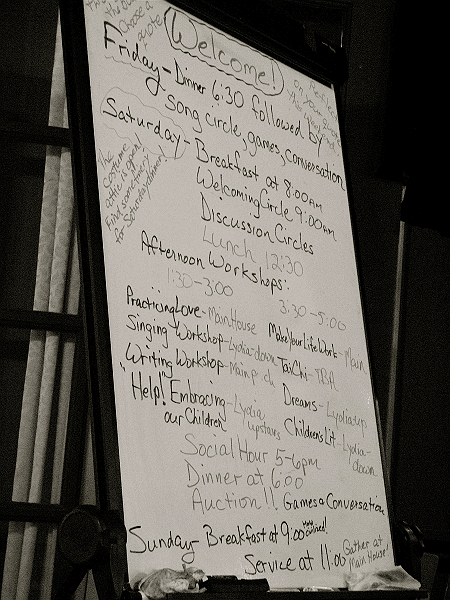 Choose a
quote
Welcome!
on your
Friday - Dinner 6:30 followed by
song circle, games, conversation
Saturday - Breakfast at 8:00AM
The
costume
attic is open!
Find something
for Saturday dinner!
Welcoming Circle 9:00AM
Discussion Circles
Lunch 12:30
Afternoon Workshops:
1:30-3:00
3:30-5:00
Practicing Love - Main House
Make Your Life Work - Main
Singing Workshop - Lydia-down
Tai Chi - TBA
Writing Workshop - Main
Dreams - Lydia-up
"Help! Embracing our Children - Lydia upstairs
Children's Lit - Lydia-down
Social Hour 5-6pm
Dinner at 6:00
Auction!! Games & Conversation
Sunday - Breakfast at 9:00
Service at 11:00 Gather at Main House!